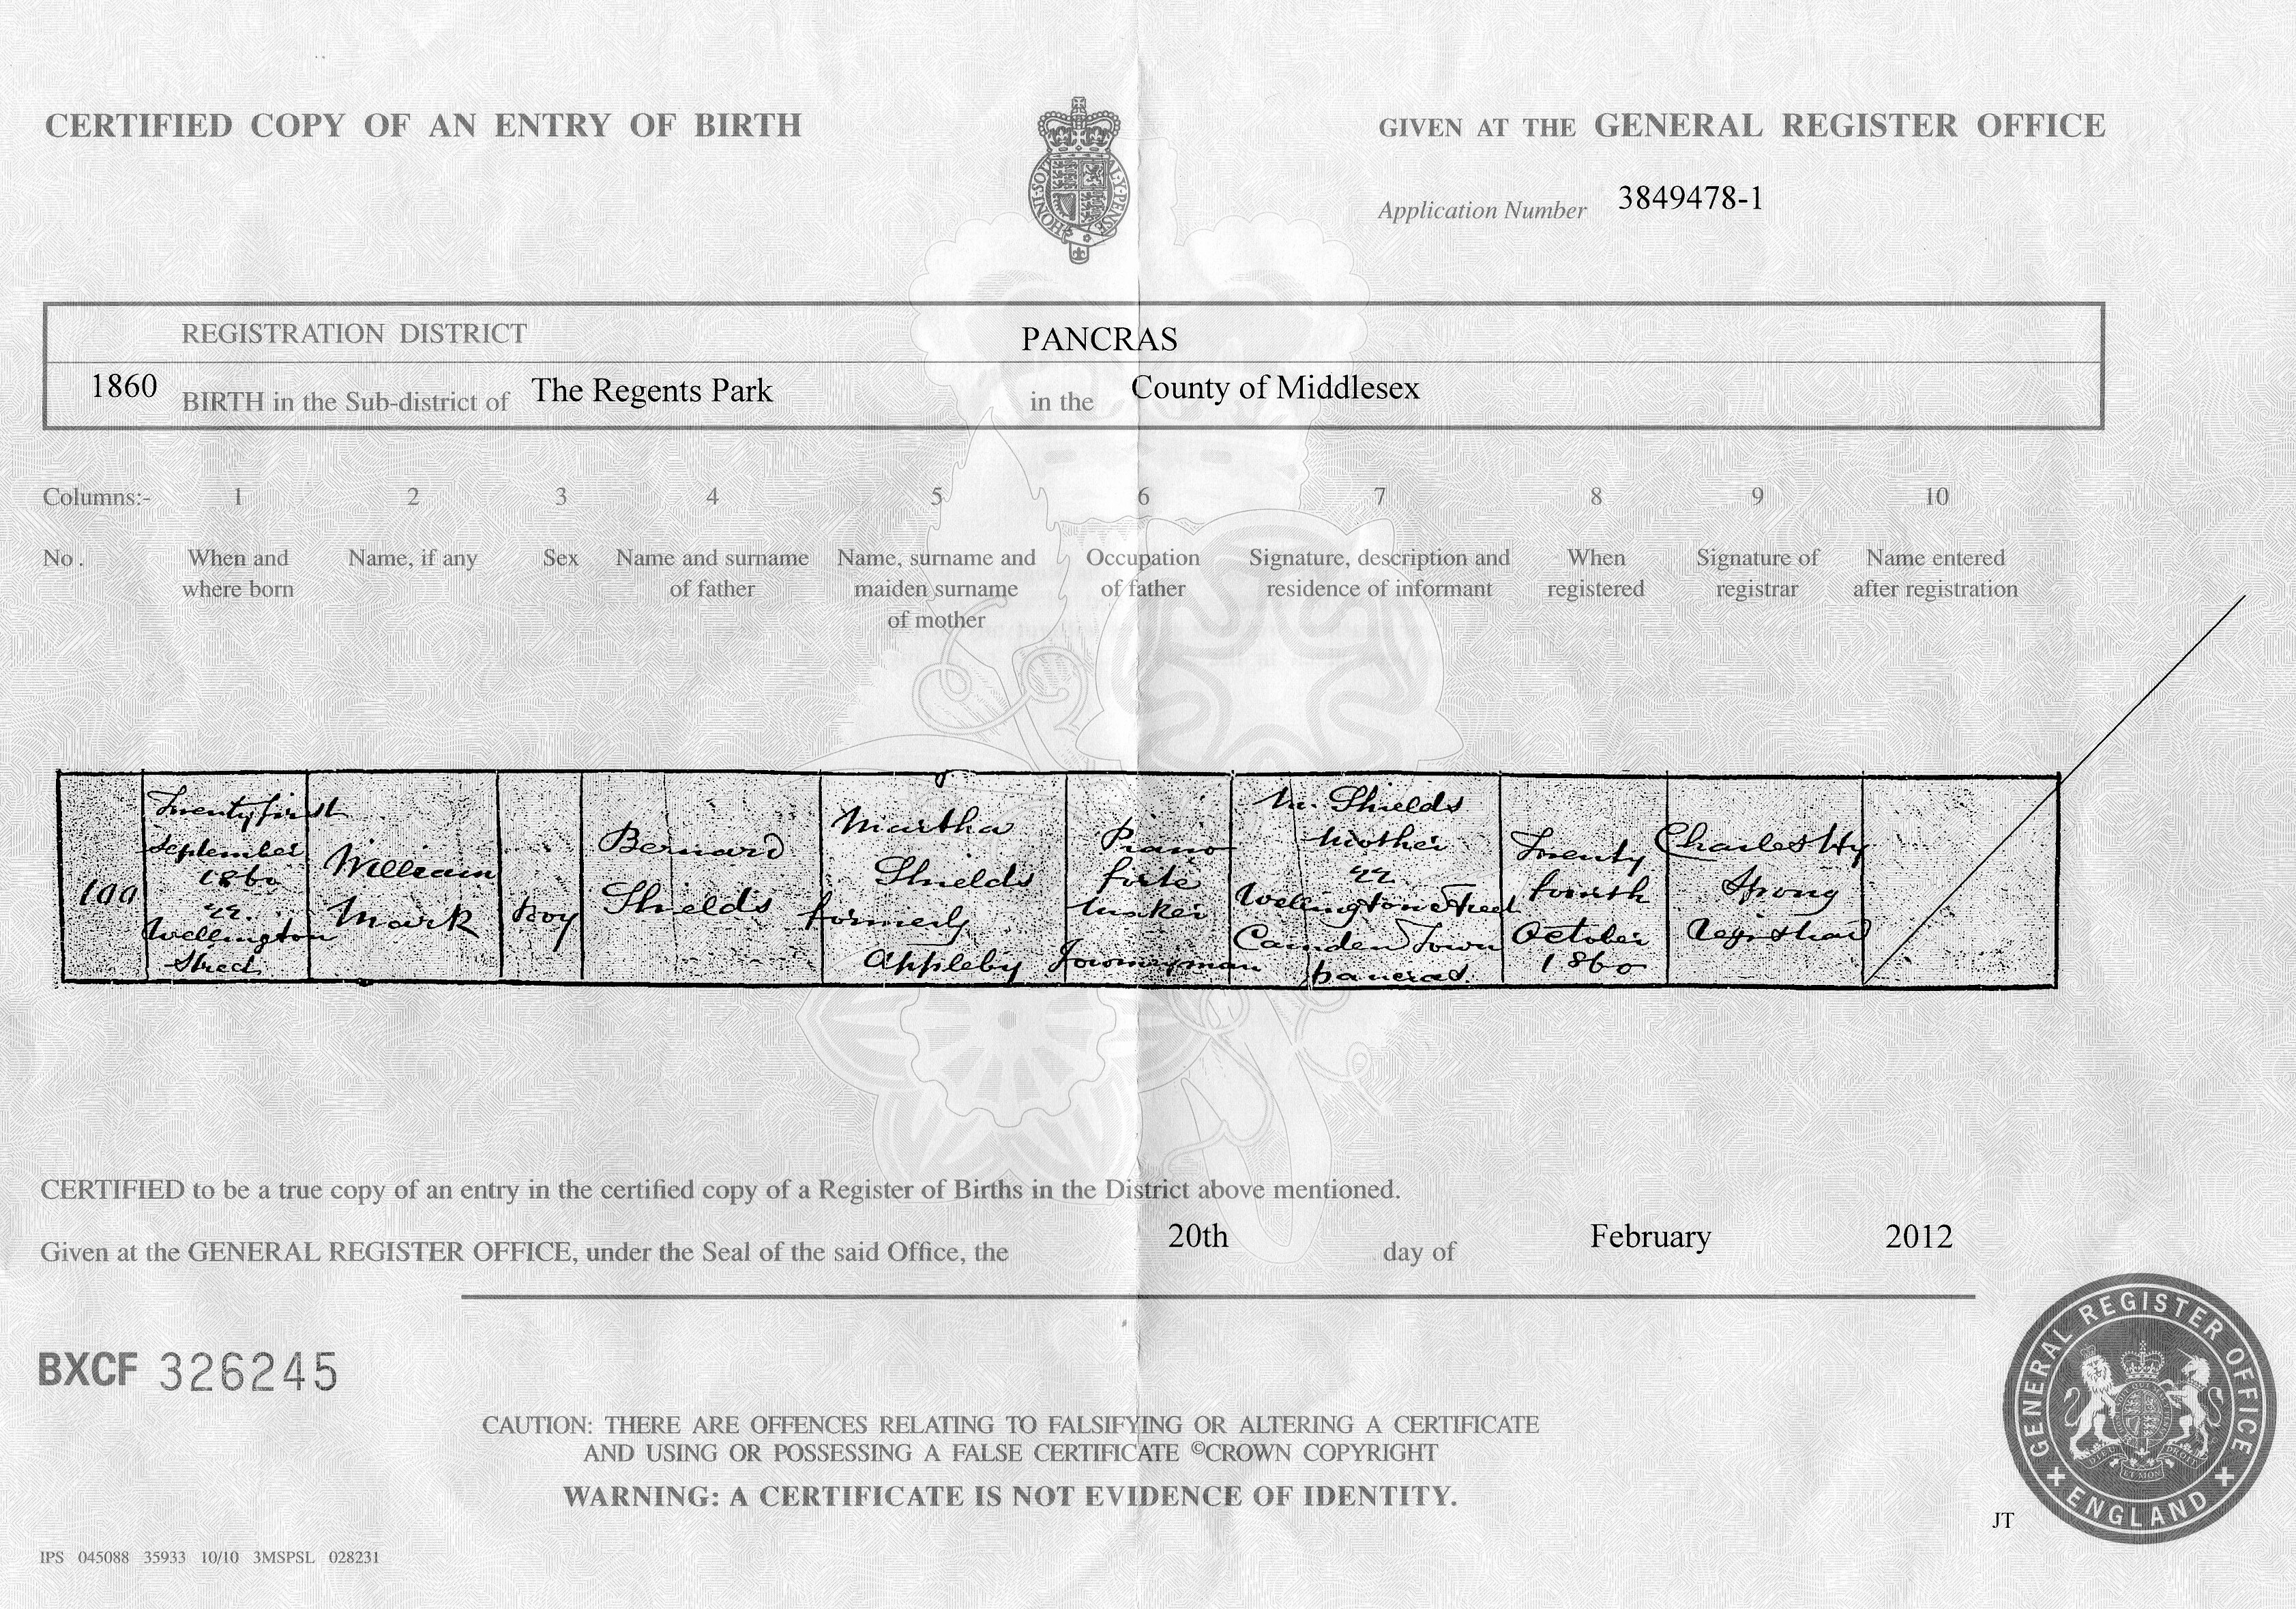 CERTIFIED COPY OF AN ENTRY OF BIRTH
GIVEN AT THE GENERAL REGISTER OFFICE
Application Number 3849478-1
REGISTRATION DISTRICT PANCRAS
1860 BIRTH in the Sub-district of The Regents Park in the County of Middlesex
Columns:- 1 2 3 4 5 6 7 8 9 10
No. When and where born
Name, if any
Sex
Name and surname of father
Name, surname and maiden surname of mother
Occupation of father
Signature, description and residence of informant
When registered
Signature of registrar
Name entered after registration
Twenty first
September
1860
Wellington
Street
William
Mark
Boy
Bernard
Shields
Martha
Shields
formerly
Appleby
Piano
forte
maker
Journeyman
M. Shields
Mother
Wellington Street
Camden Town
Pancras.
Twenty
fourth
October
1860
Charles Hy
Strong
Registrar
CERTIFIED to be a true copy of an entry in the certified copy of a Register of Births in the District above mentioned.
Given at the GENERAL REGISTER OFFICE, under the Seal of the said Office, the 20th day of February 2012
BXCF 326245
CAUTION: THERE ARE OFFENCES RELATING TO FALSIFYING OR ALTERING A CERTIFICATE
AND USING OR POSSESSING A FALSE CERTIFICATE ©CROWN COPYRIGHT
WARNING: A CERTIFICATE IS NOT EVIDENCE OF IDENTITY.
GENERAL REGISTER OFFICE
ENGLAND
JT
IPS 045088 35933 10/10 3MSPSL 028231